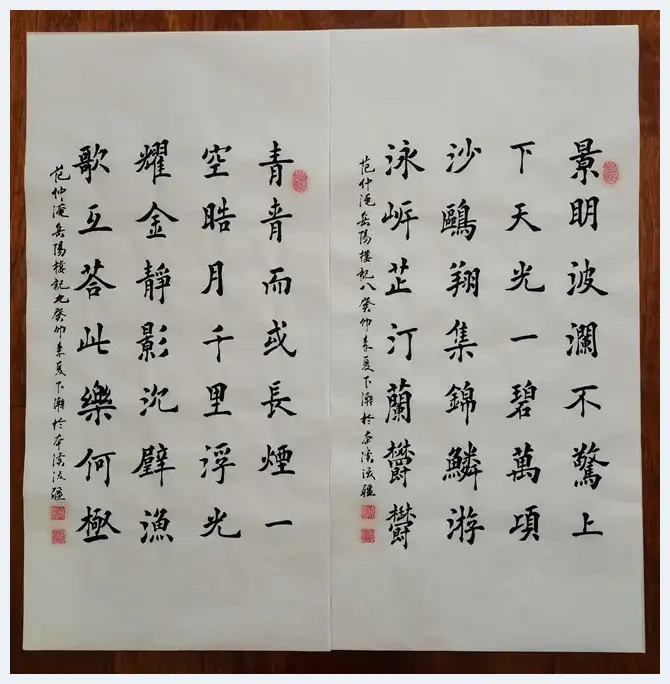 景明波瀾不驚上
下天光一碧萬頃
沙鷗翔集錦鱗游
泳岸芷汀蘭欝欝
范仲淹岳陽樓記八癸卯末夏下澣於本溪
青青而或長煙一
空晧月千里浮光
耀金靜影沉璧漁
歌互荅此樂何極
范仲淹岳陽樓記九癸卯末夏下澣於本溪